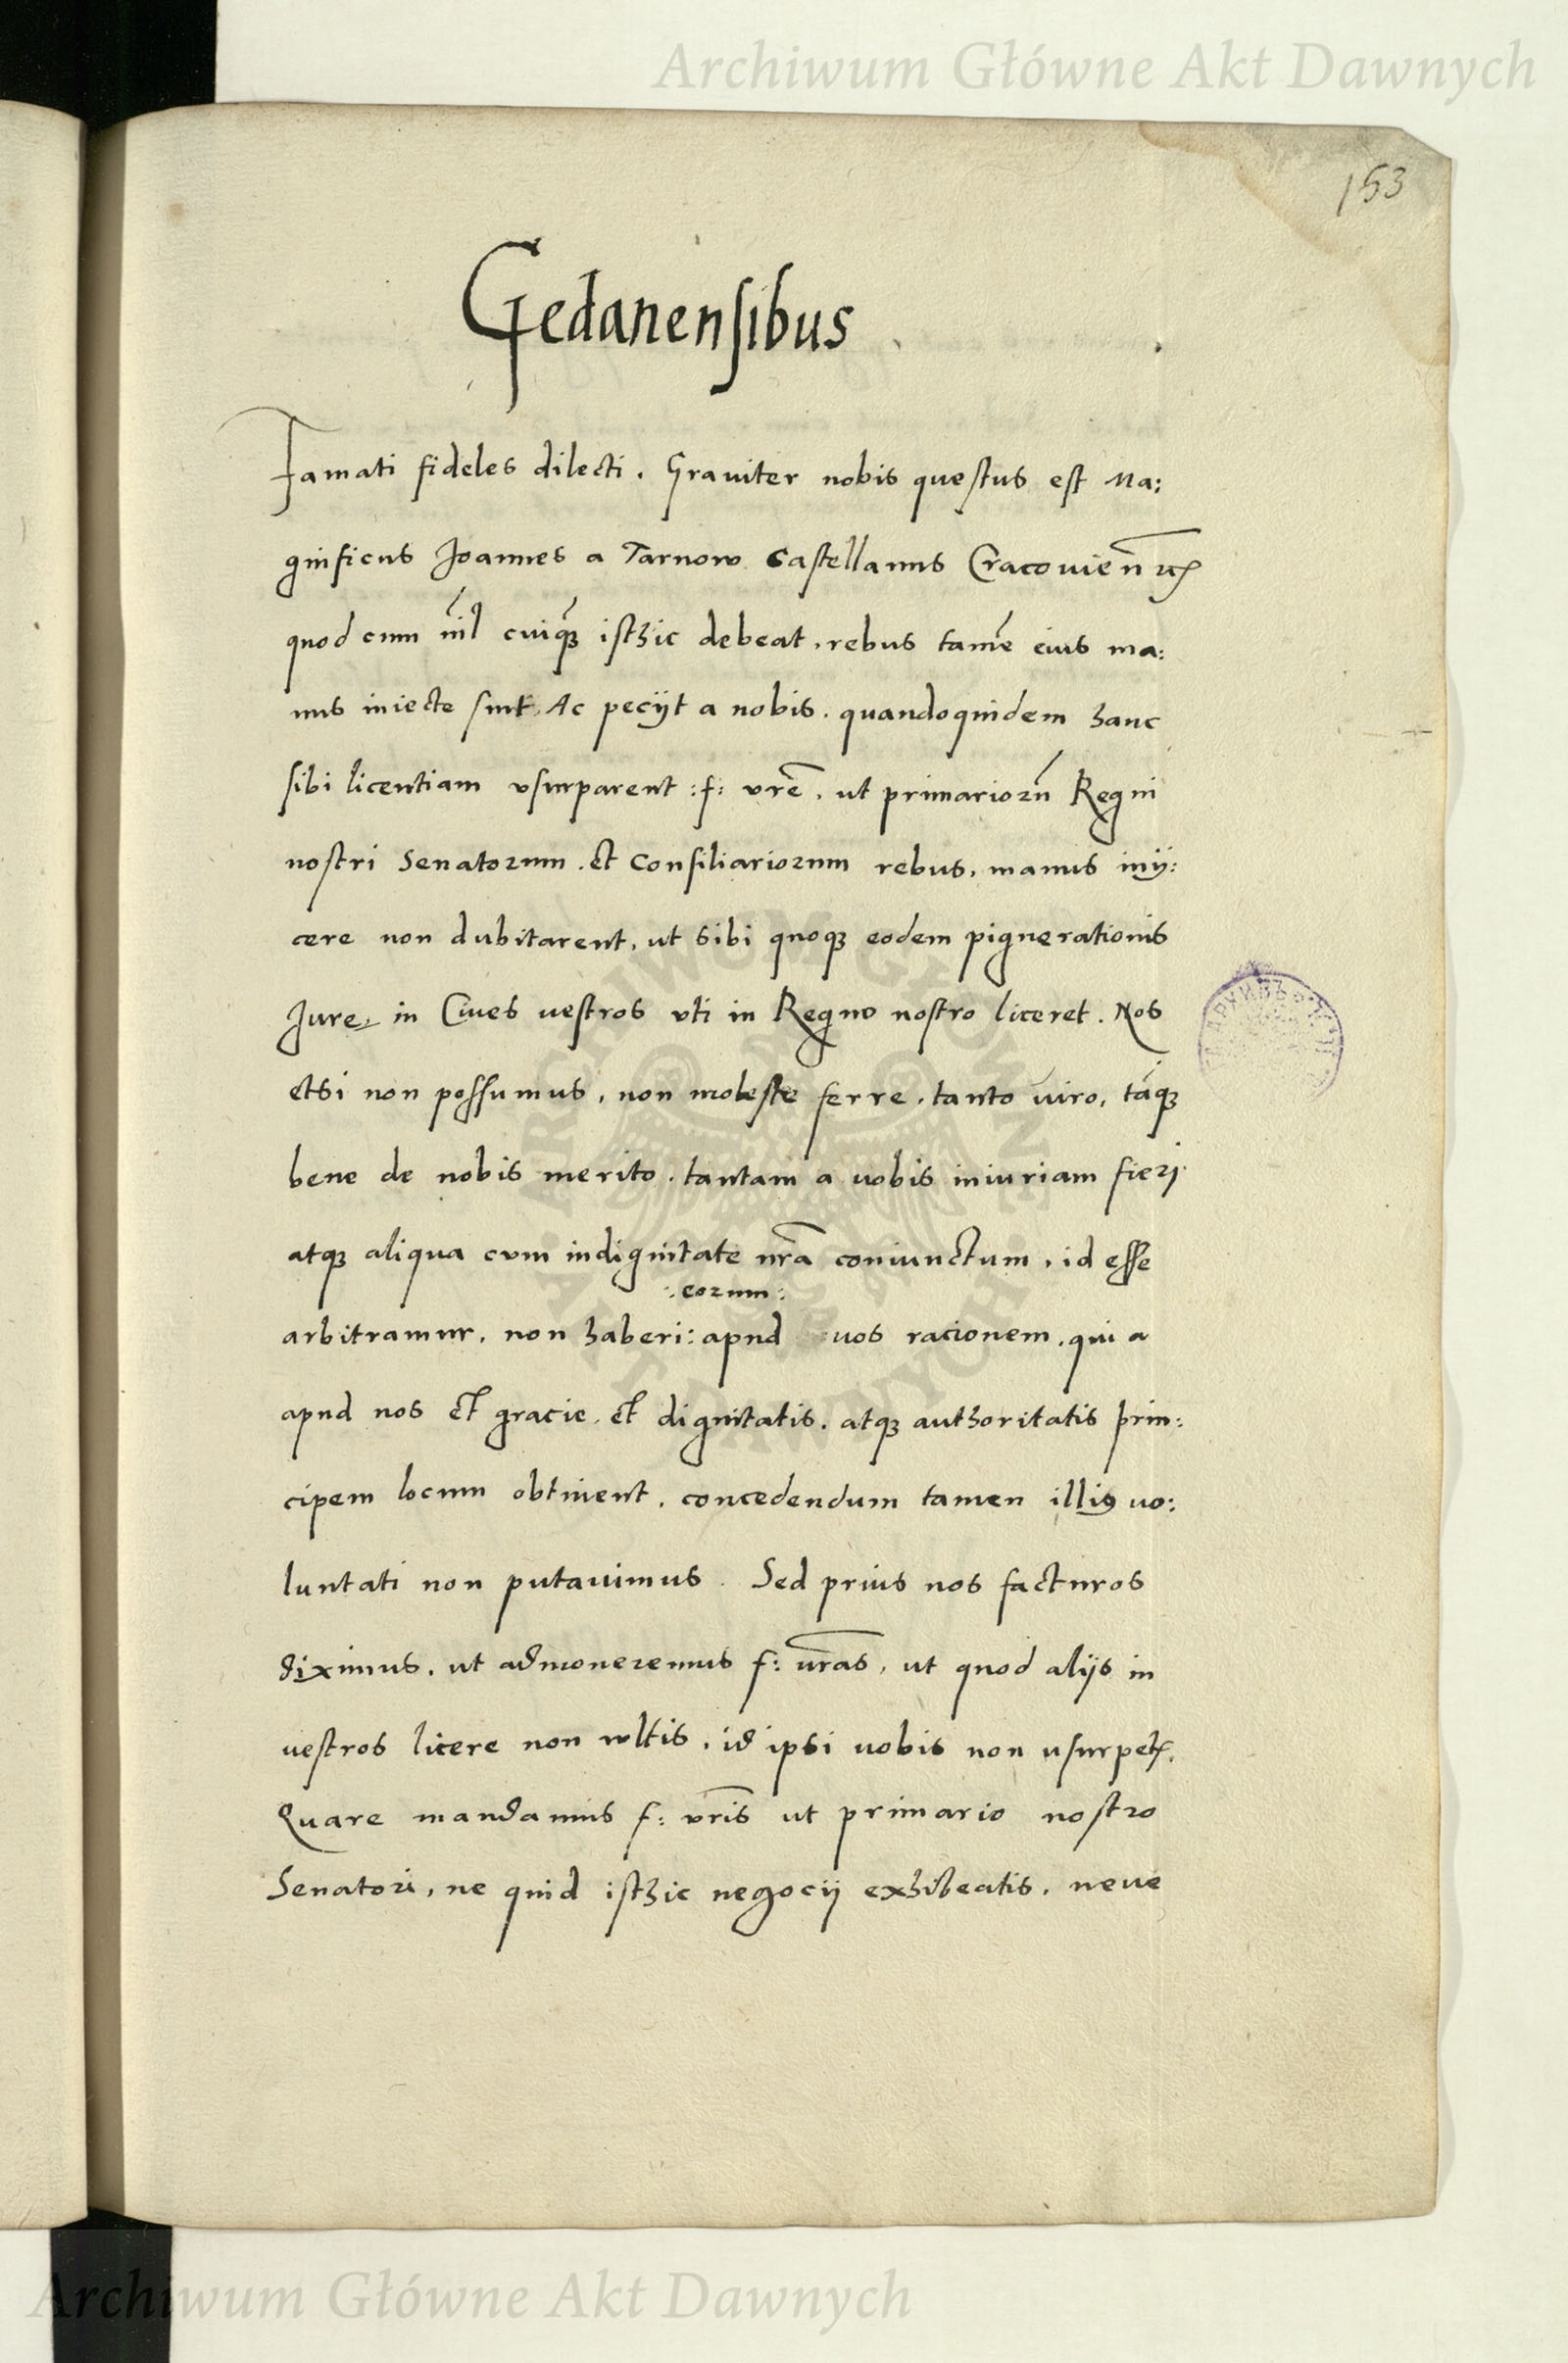 Archiwum Główne Akt Dawnych
153
Gedanensibus
Famati fideles dilecti. Graviter nobis questus est Ma:
gnificus Joannes a Tarnow Castellanus Cracovien̄ etc̄
quod cum nīl cuiq̄ȝ isthic debeat, rebus tamē eius ma:
nus iniecte sunt, Ac peciit a nobis. quandoquidem hanc
sibi licentiam vsurparent :f: vrē. ut primariorū Regni
nostri Senatorum. et Consiliariorum rebus, manus inij:
cere non dubitarent, ut sibi quoqȝ eodem pignerationis
Jure, in Cives vestros vti in Regno nostro liceret. Nos
etsi non possumus, non moleste ferre, tanto viro, tāqȝ
bene de nobis merito. tantam a vobis iniuriam fieri
atqȝ aliqua cvm indignitate nrā coniunctum, id esse
:eorum:
arbitramur, non haberi: apud vos racionem, qui a
apud nos et gracie, et dignitatis, atqȝ authoritatis prin:
cipem locum obtinent, concedendum tamen illius vo:
luntati non putavimus. Sed prius nos facturos
diximus, ut admoneremus f: vrās, ut quod alijs in
uestros licere non vultis, id ipsi vobis non usurpet.
Quare mandamus f: vrīs ut primario nostro
Senatori, ne quid isthic negocij exhibeatis, neve
ARCHIWUM GŁÓWNE AKT DAWNYCH
Archiwum Główne Akt Dawnych